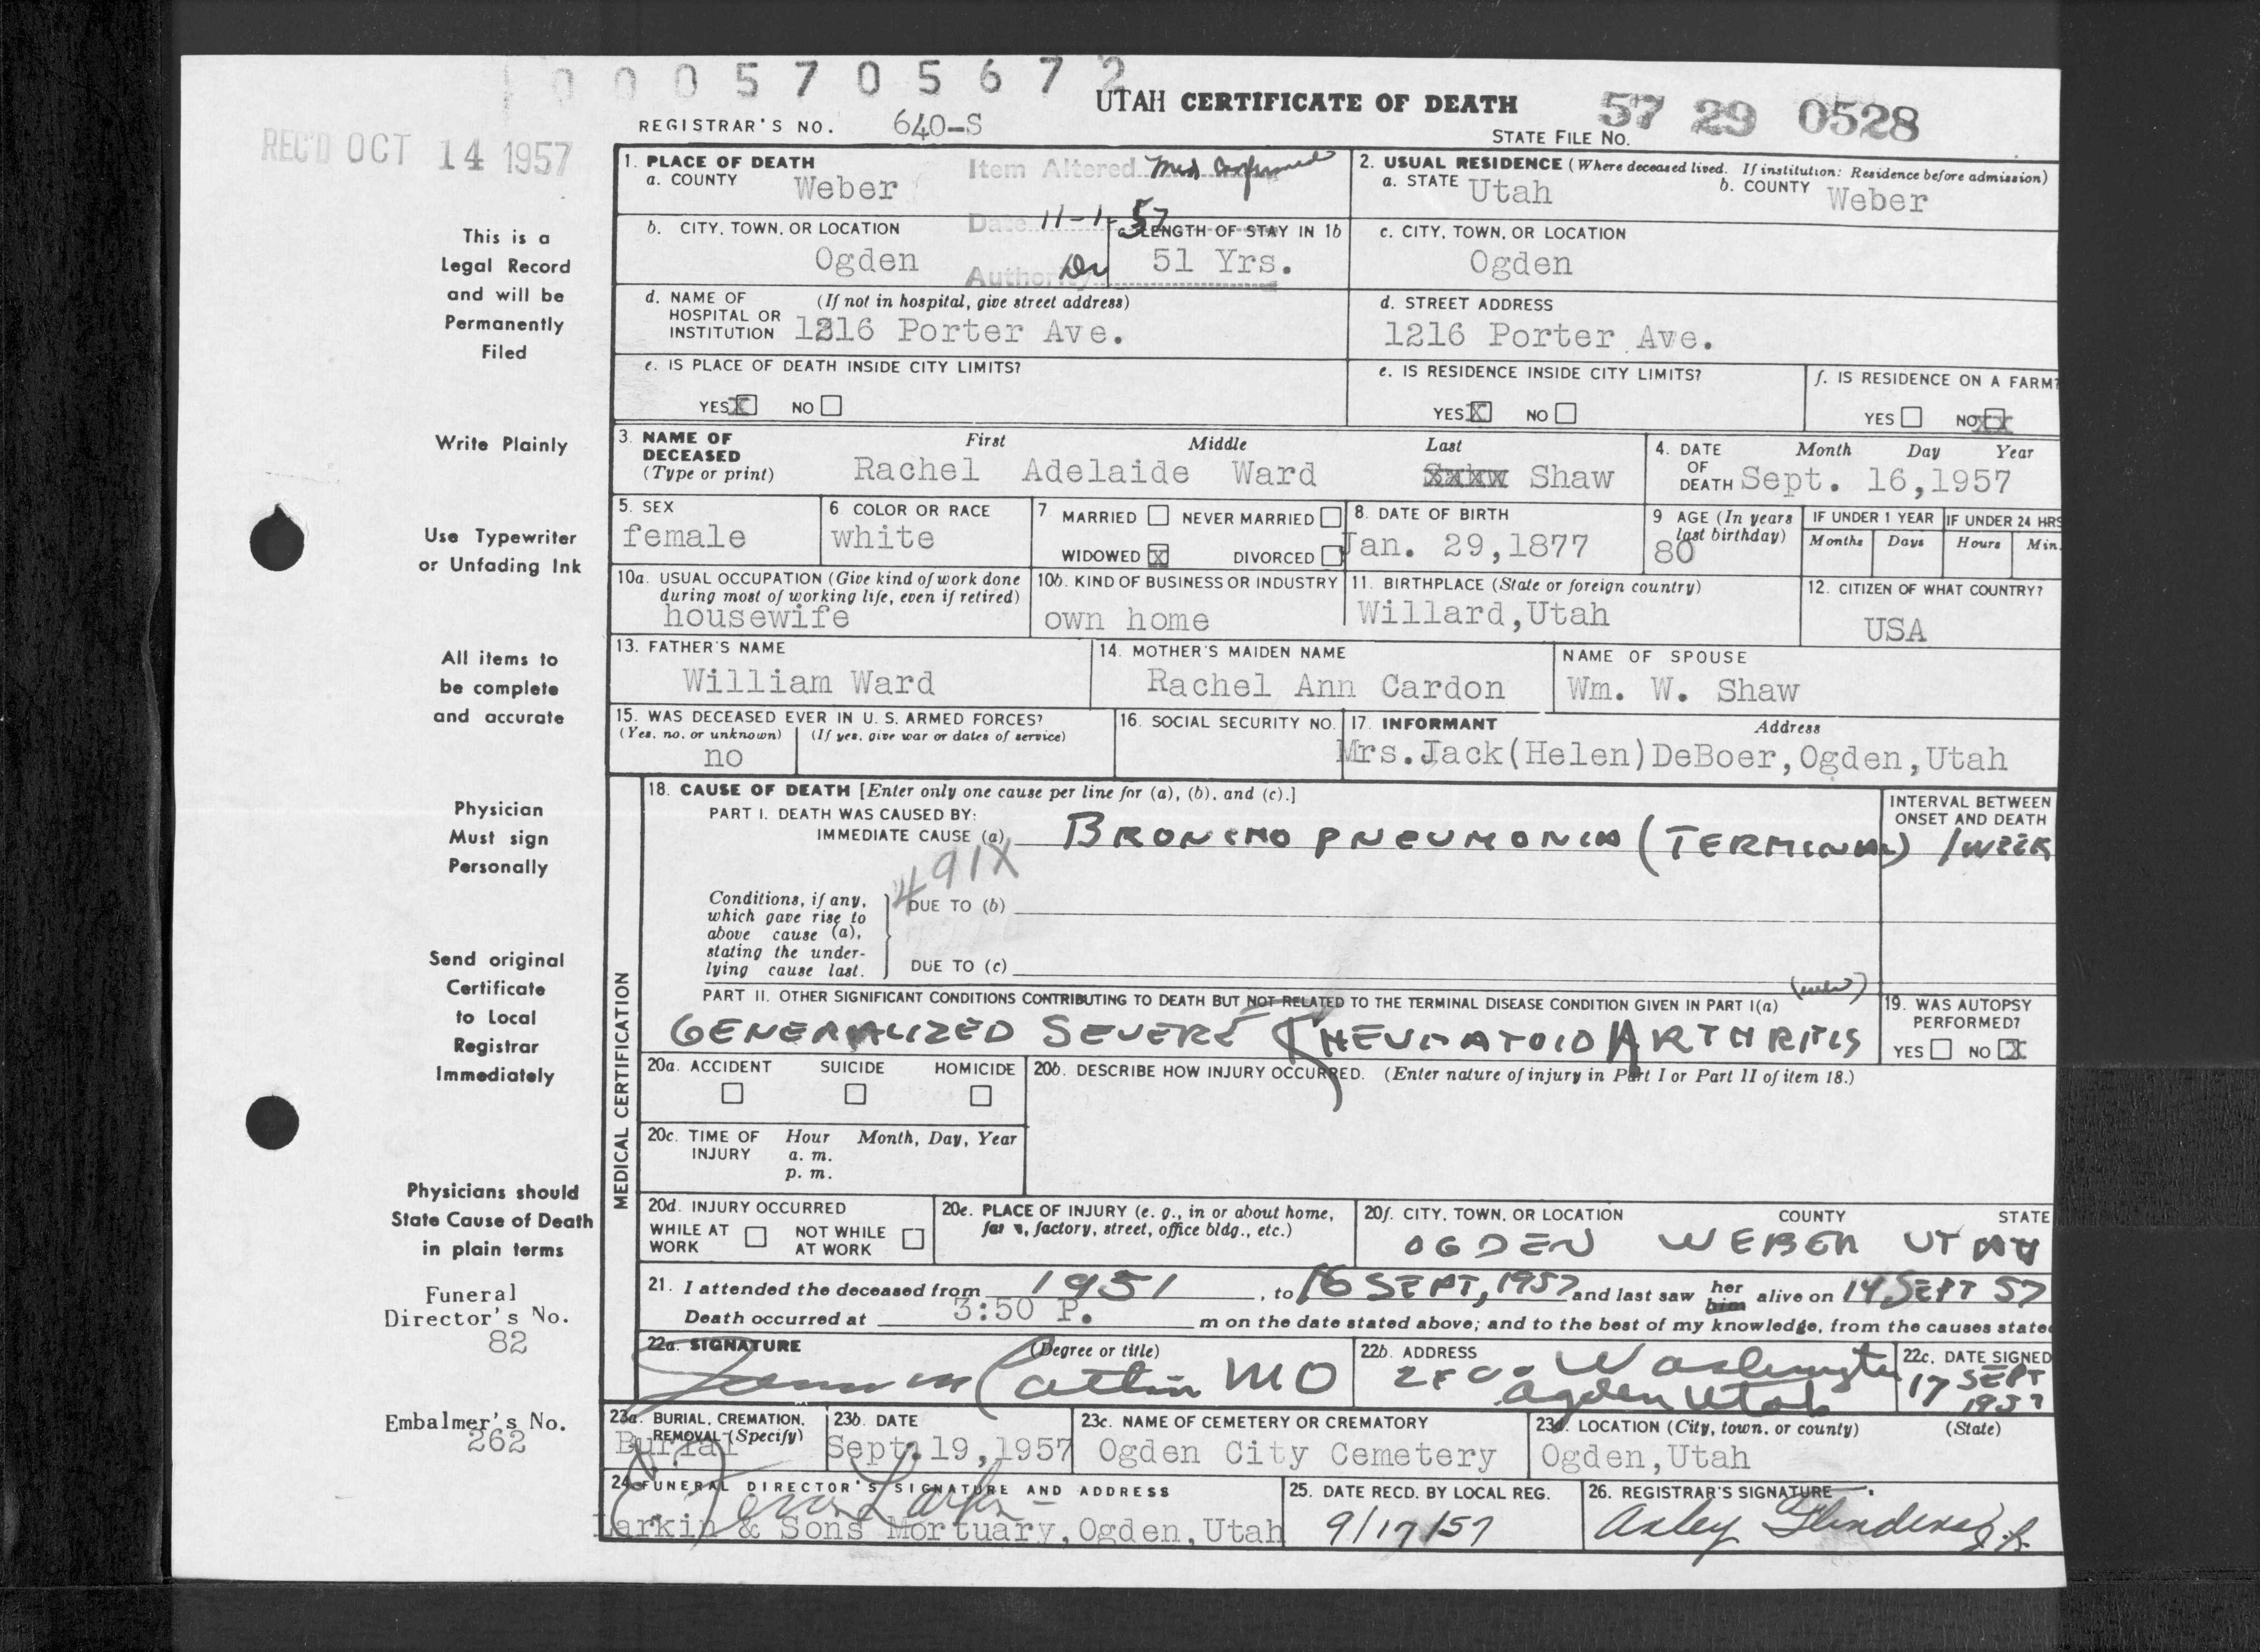 0 0 0 5 7 0 5 6 7 2
UTAH CERTIFICATE OF DEATH
REGISTRAR'S NO. 640-S
STATE FILE NO. 57 29 0528
REC'D OCT 14 1957
1. PLACE OF DEATH
a. COUNTY Weber
Item Altered
Date 11-1-57
Authority
2. USUAL RESIDENCE (Where deceased lived. If institution: Residence before admission)
a. STATE Utah b. COUNTY Weber
b. CITY, TOWN, OR LOCATION
Ogden
c. LENGTH OF STAY IN 1b
51 Yrs.
c. CITY, TOWN, OR LOCATION
Ogden
d. NAME OF HOSPITAL OR INSTITUTION (If not in hospital, give street address)
1216 Porter Ave.
d. STREET ADDRESS
1216 Porter Ave.
e. IS PLACE OF DEATH INSIDE CITY LIMITS?
YES X NO
e. IS RESIDENCE INSIDE CITY LIMITS?
YES X NO
f. IS RESIDENCE ON A FARM?
YES NO XX
3. NAME OF DECEASED (Type or print)
First Middle Last
Rachel Adelaide Ward Shaw
4. DATE OF DEATH Month Day Year
Sept. 16,1957
5. SEX
female
6. COLOR OR RACE
white
7. MARRIED NEVER MARRIED
WIDOWED X DIVORCED
8. DATE OF BIRTH
Jan. 29,1877
9 AGE (In years last birthday)
80
IF UNDER 1 YEAR
Months Days
IF UNDER 24 HRS
Hours Min.
10a. USUAL OCCUPATION (Give kind of work done during most of working life, even if retired)
housewife
10b. KIND OF BUSINESS OR INDUSTRY
own home
11. BIRTHPLACE (State or foreign country)
Willard,Utah
12. CITIZEN OF WHAT COUNTRY?
USA
13. FATHER'S NAME
William Ward
14. MOTHER'S MAIDEN NAME
Rachel Ann Cardon
NAME OF SPOUSE
Wm. W. Shaw
15. WAS DECEASED EVER IN U. S. ARMED FORCES?
(Yes, no, or unknown) (If yes, give war or dates of service)
no
16. SOCIAL SECURITY NO.
17. INFORMANT Address
Mrs.Jack(Helen)DeBoer,Ogden,Utah
MEDICAL CERTIFICATION
18. CAUSE OF DEATH [Enter only one cause per line for (a), (b), and (c).]
PART I. DEATH WAS CAUSED BY:
IMMEDIATE CAUSE (a) BRONCHO PNEUMONIA (TERMINAL)
INTERVAL BETWEEN ONSET AND DEATH
1 WEEK
491X
Conditions, if any, which gave rise to above cause (a), stating the underlying cause last.
DUE TO (b)
DUE TO (c)
PART II. OTHER SIGNIFICANT CONDITIONS CONTRIBUTING TO DEATH BUT NOT RELATED TO THE TERMINAL DISEASE CONDITION GIVEN IN PART I(a)
GENERALIZED SEVERE RHEUMATOID ARTHRITIS
19. WAS AUTOPSY PERFORMED?
YES NO X
20a. ACCIDENT SUICIDE HOMICIDE
20b. DESCRIBE HOW INJURY OCCURRED. (Enter nature of injury in Part I or Part II of item 18.)
20c. TIME OF INJURY Hour Month, Day, Year
a. m.
p. m.
20d. INJURY OCCURRED
WHILE AT WORK NOT WHILE AT WORK
20e. PLACE OF INJURY (e. g., in or about home, farm, factory, street, office bldg., etc.)
20f. CITY, TOWN, OR LOCATION COUNTY STATE
OGDEN WEBER UTAH
21. I attended the deceased from 1951, to 16 SEPT, 1957 and last saw her him alive on 14 SEPT 57
Death occurred at 3:50 P. m on the date stated above; and to the best of my knowledge, from the causes stated
22a. SIGNATURE (Degree or title)
MD
22b. ADDRESS
Washington
Ogden Utah
22c. DATE SIGNED
17 SEPT 1957
23a. BURIAL, CREMATION, REMOVAL (Specify)
Burial
23b. DATE
Sept. 19,1957
23c. NAME OF CEMETERY OR CREMATORY
Ogden City Cemetery
23d. LOCATION (City, town, or county) (State)
Ogden,Utah
24. FUNERAL DIRECTOR'S SIGNATURE AND ADDRESS
Larkin & Sons Mortuary,Ogden,Utah
25. DATE RECD. BY LOCAL REG.
9/17/57
26. REGISTRAR'S SIGNATURE
This is a
Legal Record
and will be
Permanently
Filed
Write Plainly
Use Typewriter
or Unfading Ink
All items to
be complete
and accurate
Physician
Must sign
Personally
Send original
Certificate
to Local
Registrar
Immediately
Physicians should
State Cause of Death
in plain terms
Funeral
Director's No.
82
Embalmer's No.
262